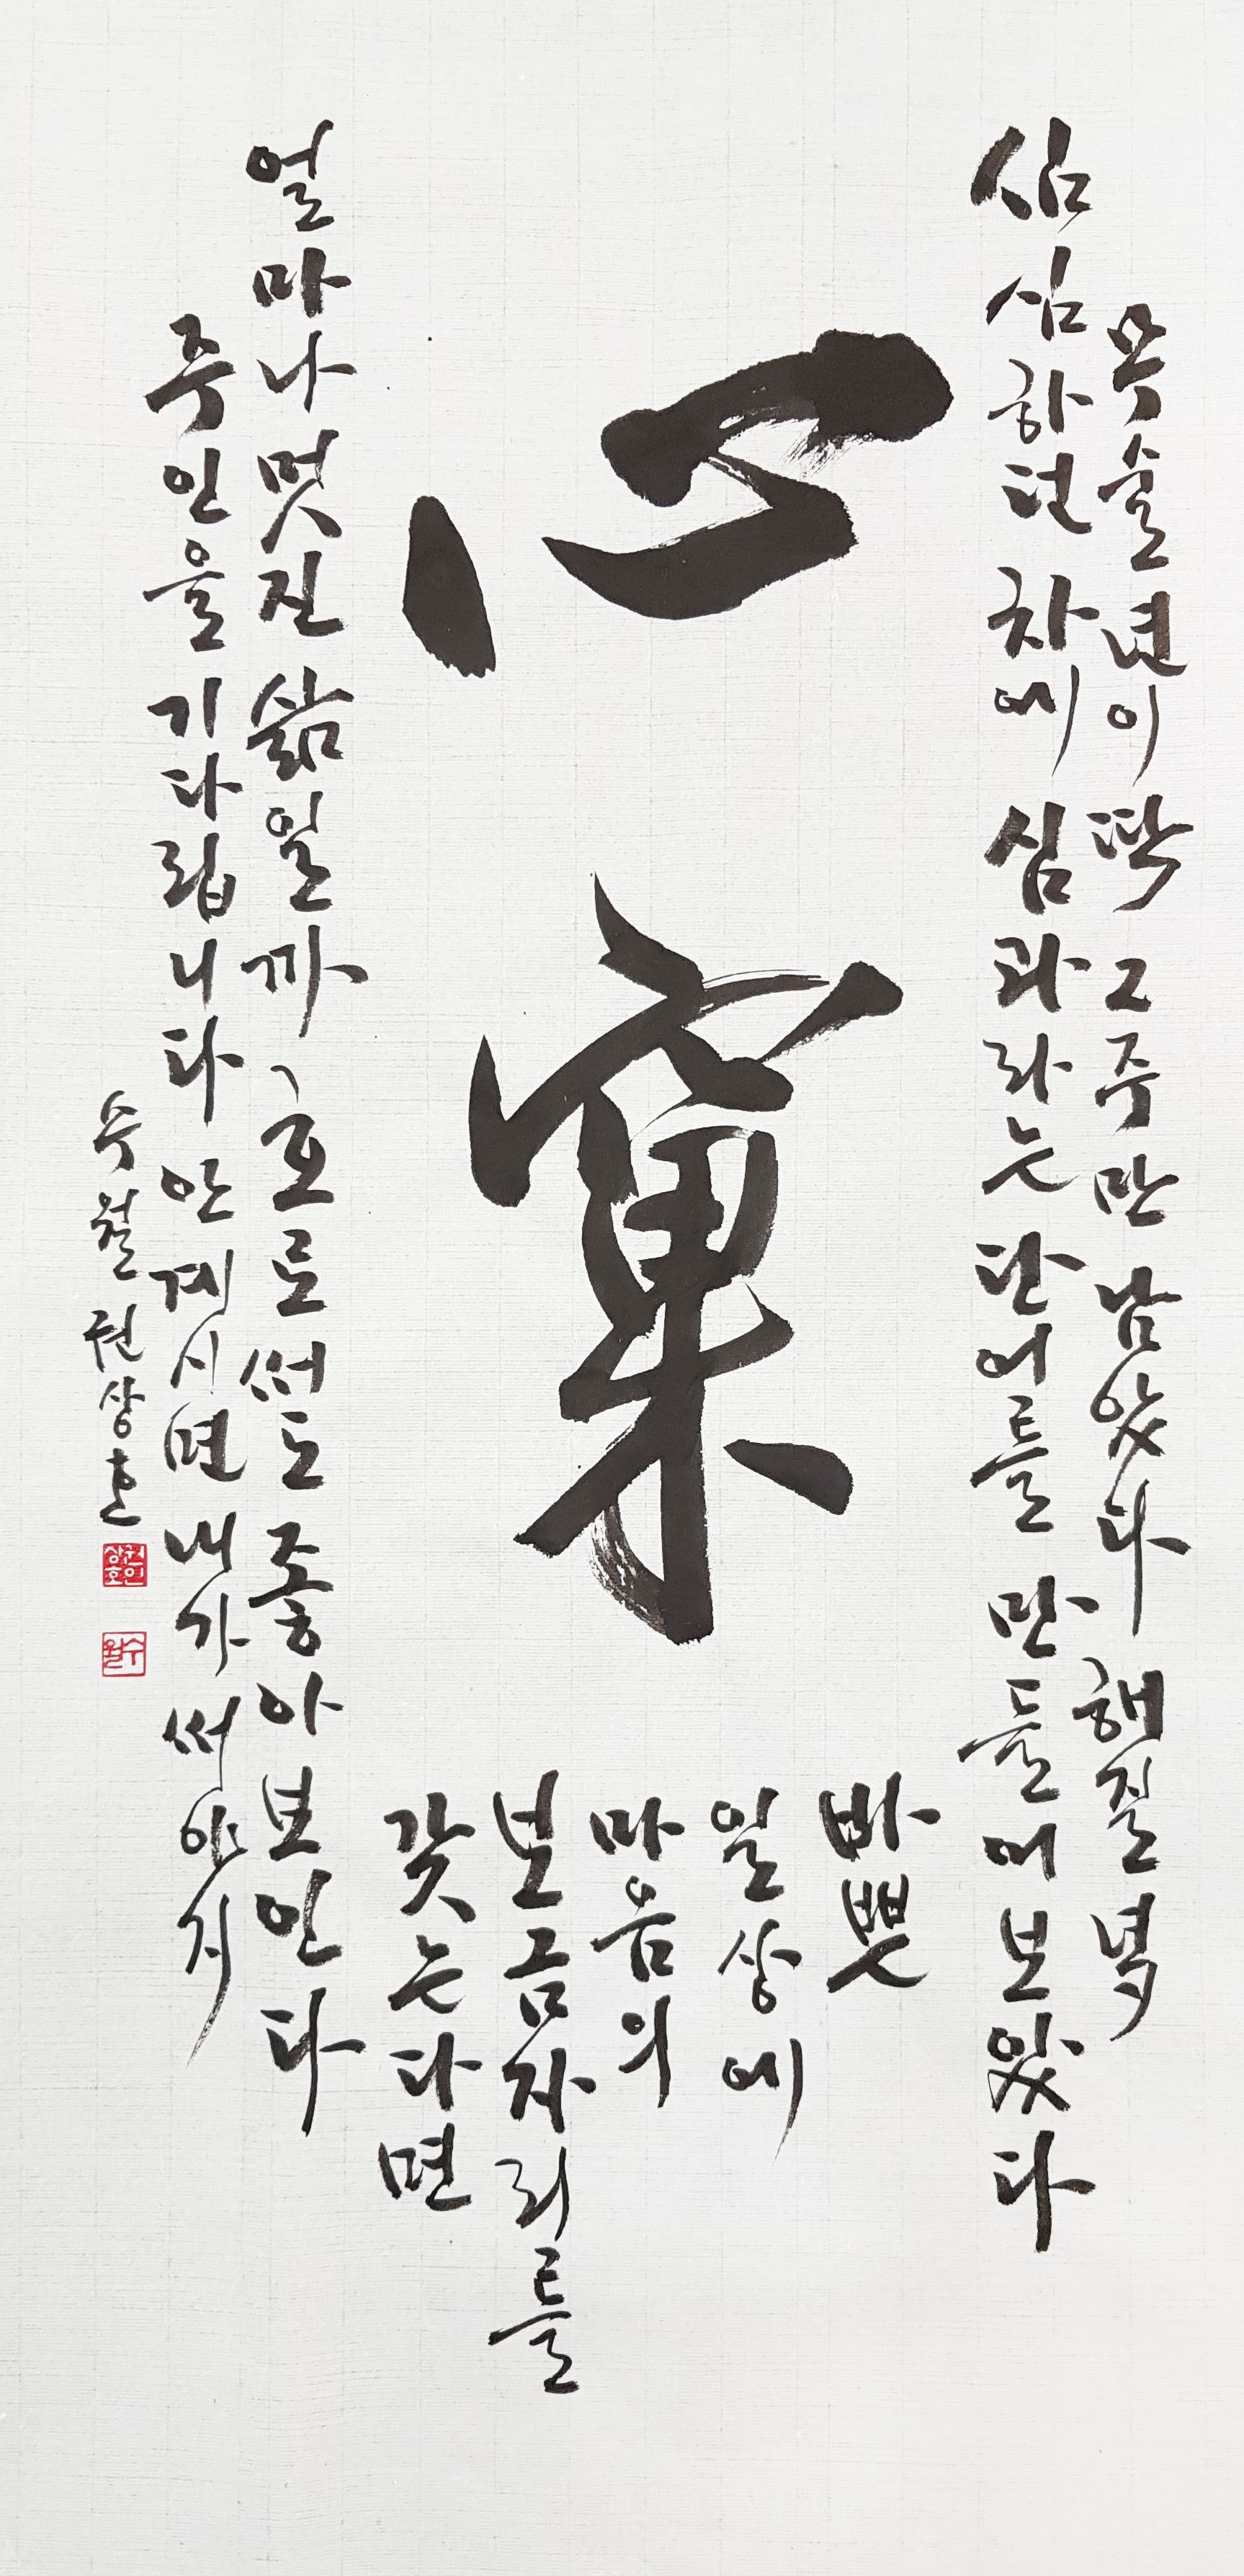 무술년이 딱 2주만 남았다 해질녘
심심하던 차에 심과라는 단어를 만들어 보았다
心
窠
바쁜
일상에
마음의
보금자리를
갖는다면
얼마나 멋진 삶일까 호로 써도 좋아 보인다
주인을 기다립니다 안 계시면 내가 써야지
수월 권상호
권인상호
수월